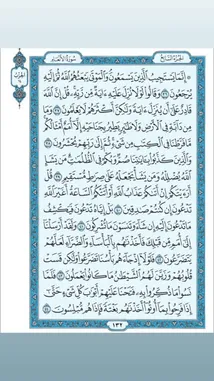 الجزء السابع
سورة الأنعام
۞ إنما يستجيب الذين يسمعون والموتى يبعثهم الله ثم إليه
يرجعون ٣٦ وقالوا لولا نزل عليه آية من ربه قل إن الله
قادر على أن ينزل آية ولكن أكثرهم لا يعلمون ٣٧ وما
من دابة في الأرض ولا طائر يطير بجناحيه إلا أمم أمثالكم
ما فرطنا في الكتاب من شيء ثم إلى ربهم يحشرون ٣٨
والذين كذبوا بآياتنا صم وبكم في الظلمات من يشإ
الله يضلله ومن يشأ يجعله على صراط مستقيم ٣٩ قل
أرءيتكم إن أتاكم عذاب الله أو أتتكم الساعة أغير الله
تدعون إن كنتم صادقين ٤٠ بل إياه تدعون فيكشف
ما تدعون إليه إن شاء وتنسون ما تشركون ٤١ ولقد أرسلنا
إلى أمم من قبلك فأخذناهم بالبأساء والضراء لعلهم
يتضرعون ٤٢ فلولا إذ جاءهم بأسنا تضرعوا ولكن قست
قلوبهم وزين لهم الشيطان ما كانوا يعملون ٤٣ فلما
نسوا ما ذكروا به فتحنا عليهم أبواب كل شيء حتى
إذا فرحوا بما أوتوا أخذناهم بغتة فإذا هم مبلسون ٤٤
١٣٢